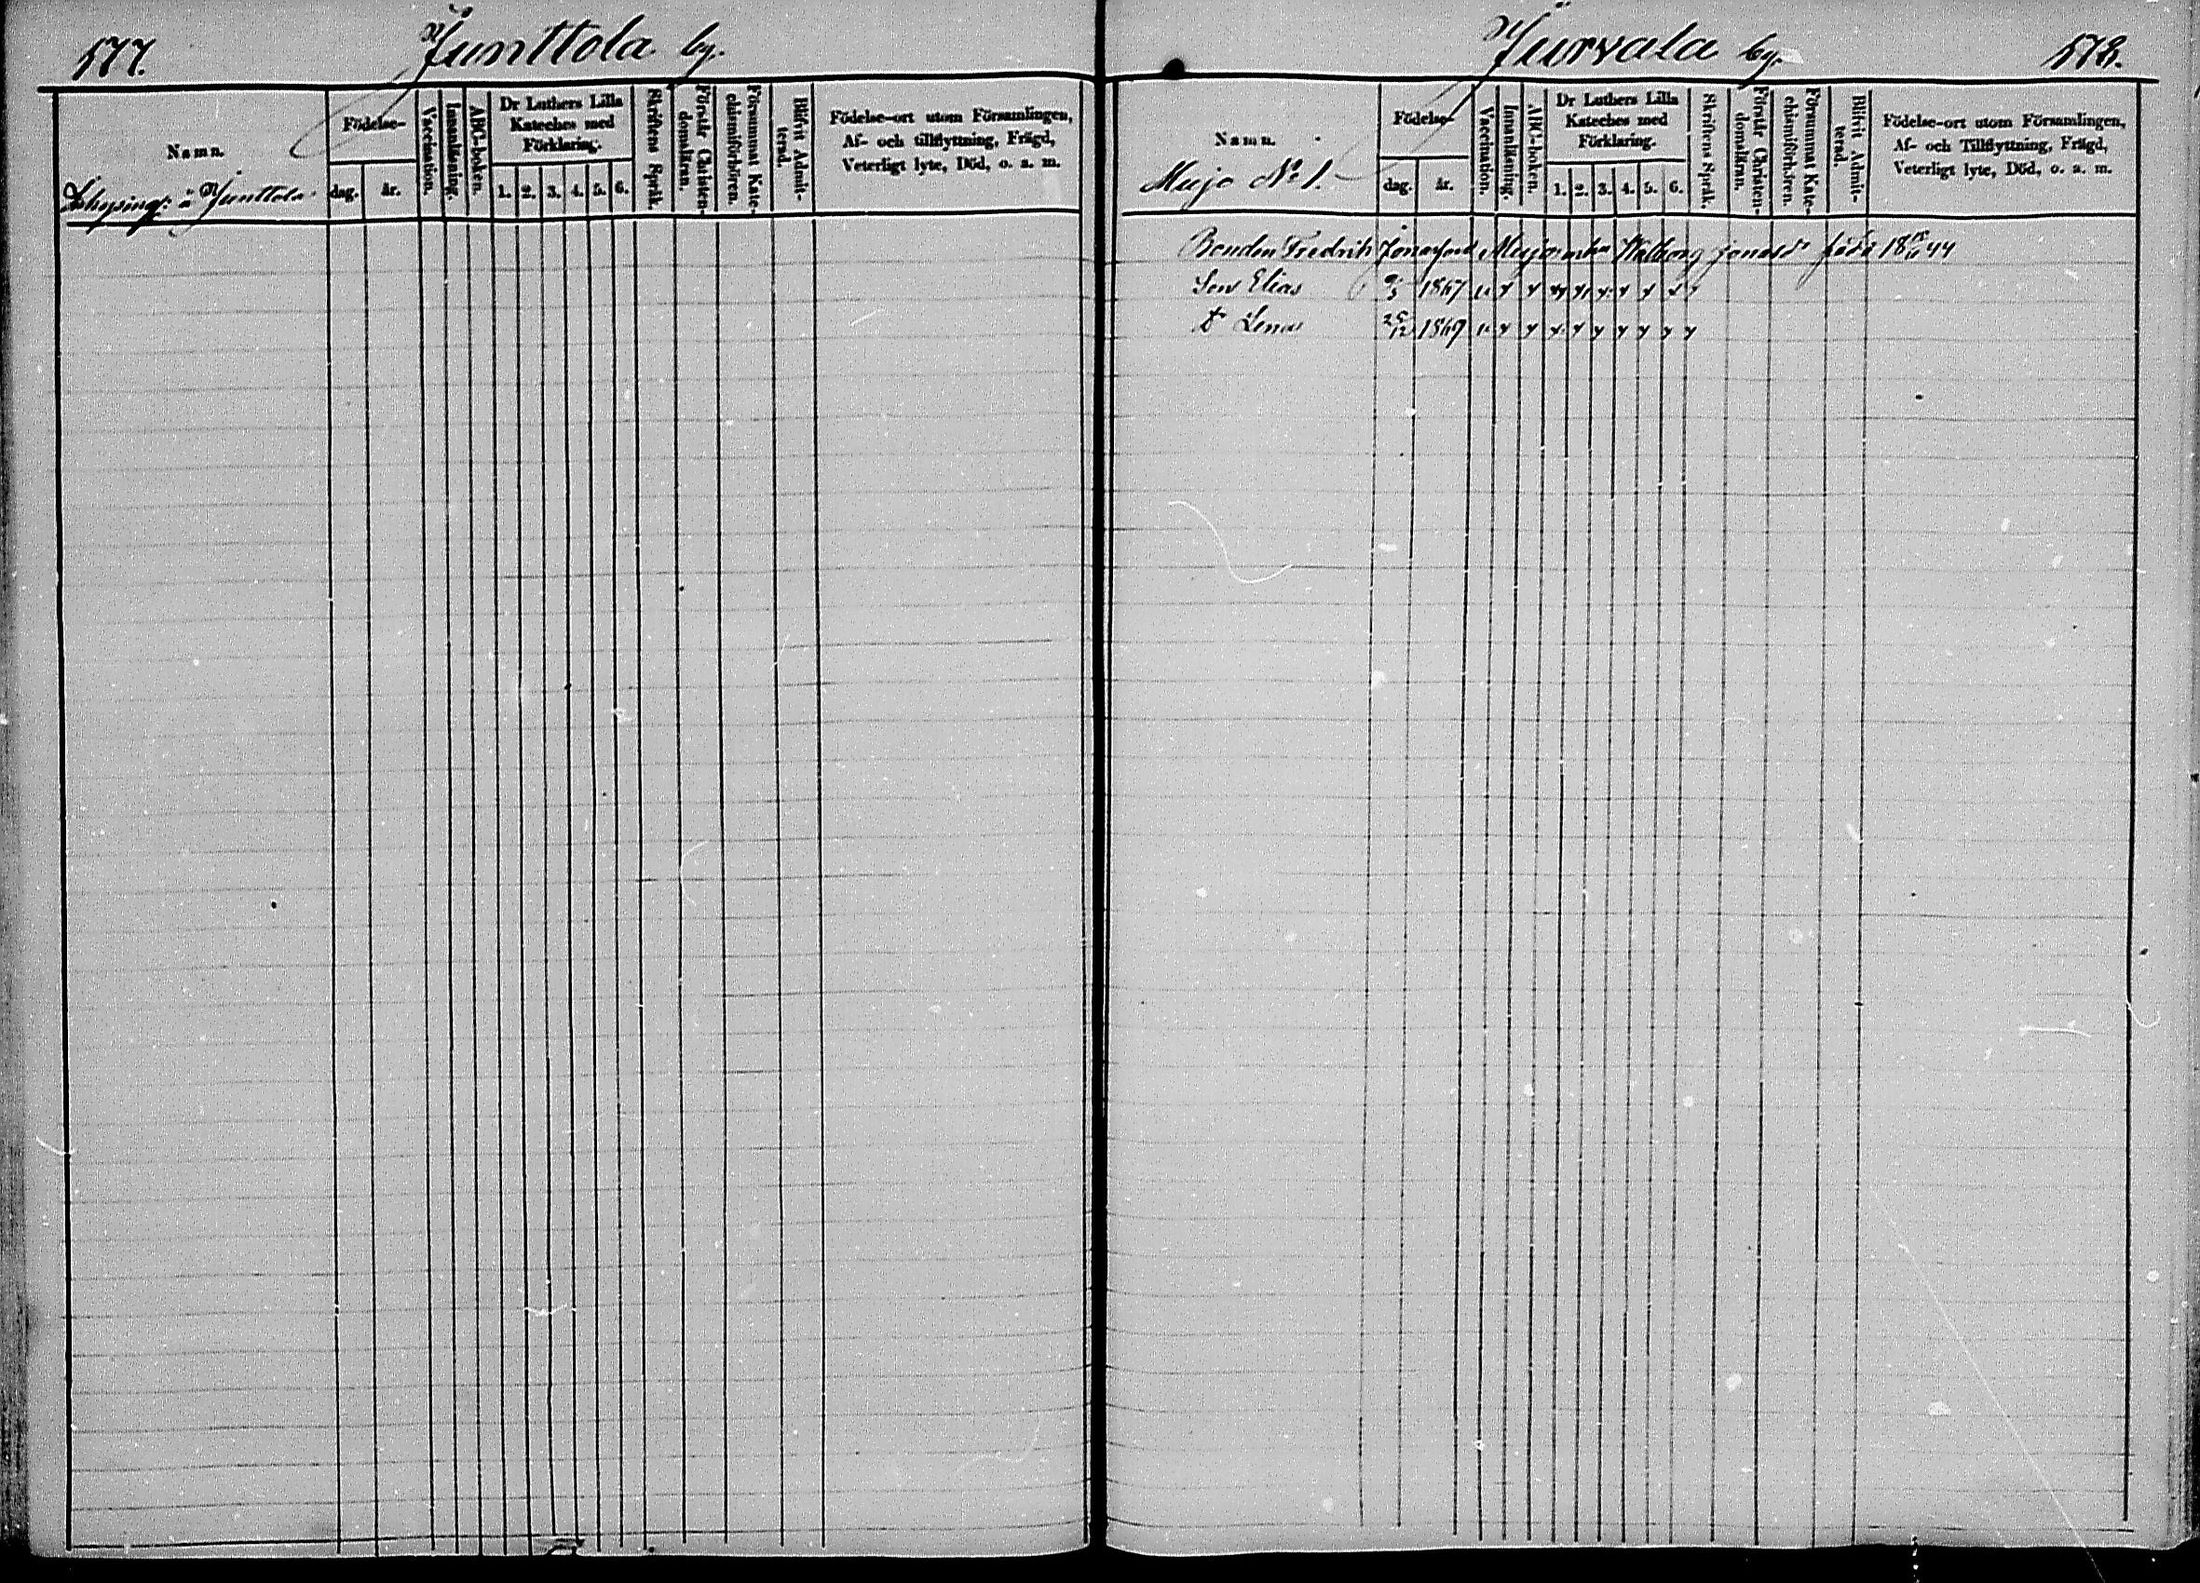 577. Junttola by.
Namn.
Födelse-
dag. år.
Vaccination.
Innanläsning.
ABC-boken.
Dr Luthers Lilla
Kateches med
Förklaring.
1. 2. 3. 4. 5. 6.
Skriftens Språk.
Förstår Christen-
domsläran.
Försummat Kate-
chismiförhören.
Blifvit Admit-
terad.
Födelse-ort utom Församlingen,
Af- och tillflyttning, Frägd,
Veterligt lyte, Död, o. s. m.
Inhysingr å Junttola
Jurvala by. 578.
Namn.
Mujo No 1.
Födelse-
dag. år.
Vaccination.
Innanläsning.
ABC-boken.
Dr Luthers Lilla
Kateches med
Förklaring.
1. 2. 3. 4. 5. 6.
Skriftens Språk.
Förstår Christen-
domsläran.
Försummat Kate-
chismiförhören.
Blifvit Admit-
terad.
Födelse-ort utom Församlingen,
Af- och Tillflyttning, Frägd,
Veterligt lyte, Död, o. s. m.
Bonden Fredrik Jonasson Mujo Walborg född 18 44
Son Elias 1867
Dr Lena 1869